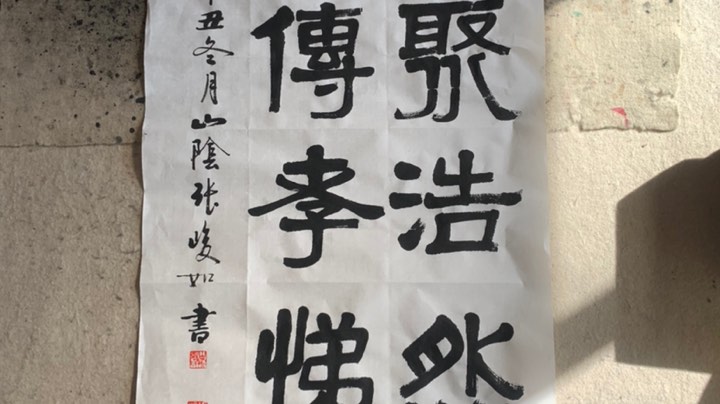 聚浩然
傳孝悌
丑冬月山陰张峻如書